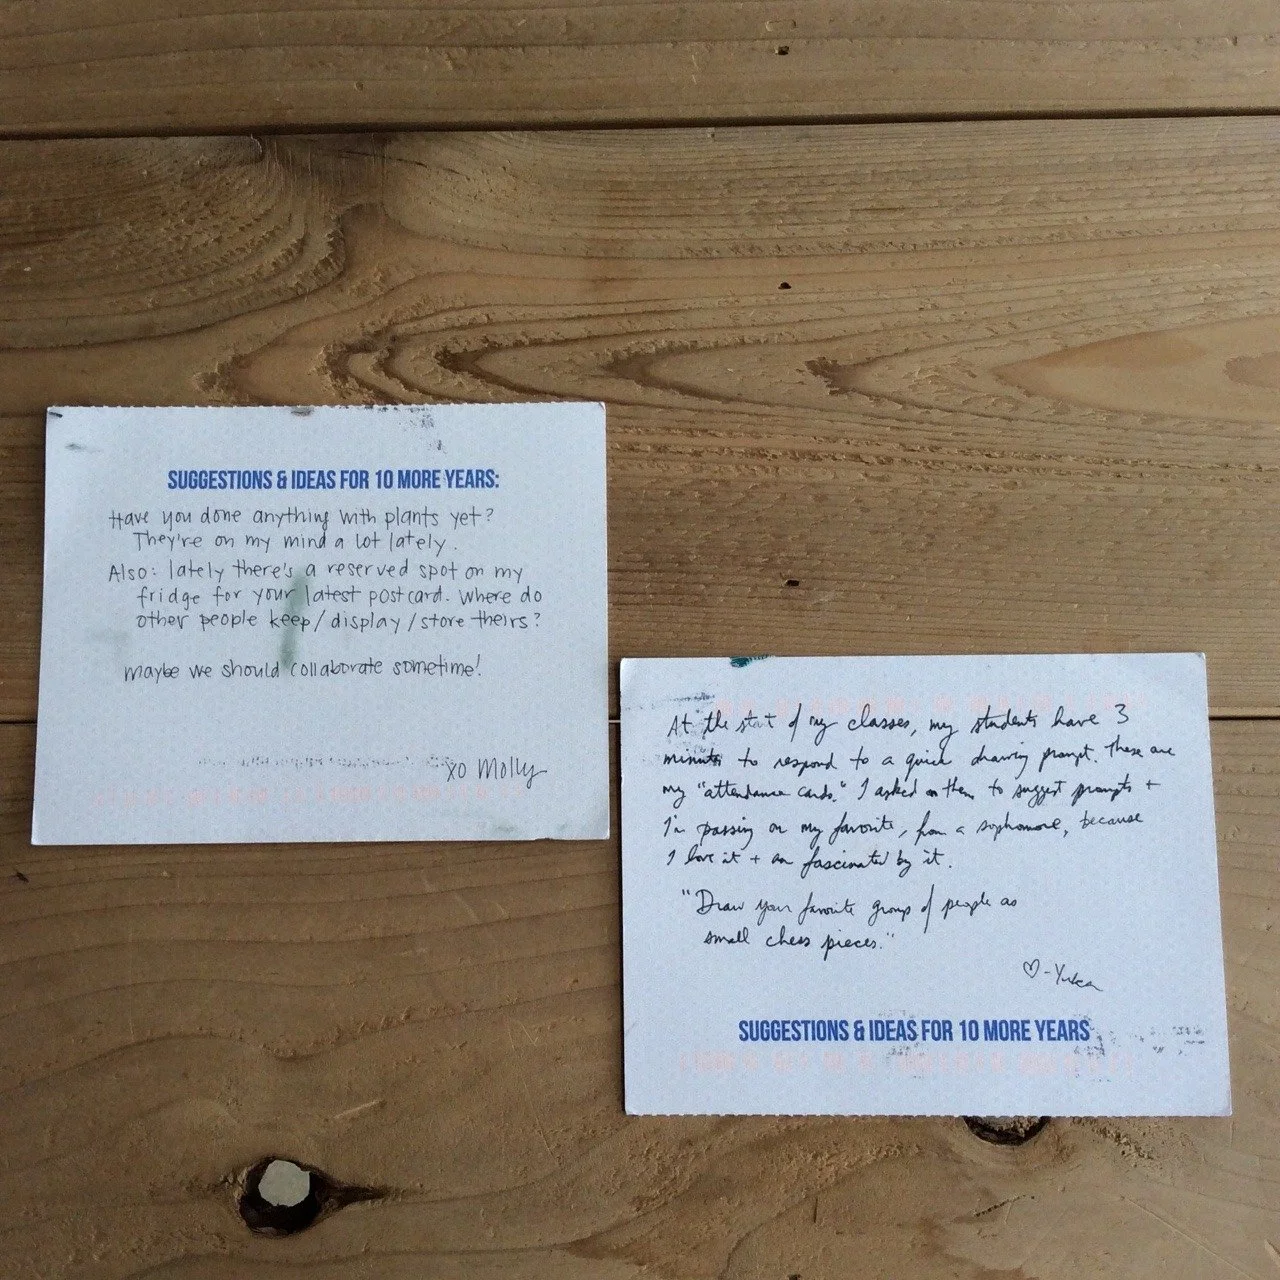 SUGGESTIONS & IDEAS FOR 10 MORE YEARS:
Have you done anything with plants yet?
They're on my mind a lot lately.
Also: lately there's a reserved spot on my
fridge for your latest postcard. Where do
other people keep/display/store theirs?
maybe we should collaborate sometime!
xo Molly
At the start of my classes, my students have 3
minutes to respond to a quick drawing prompt. These are
my "attendance cards." I asked them to suggest prompts +
I'm passing on my favorite, from a sophomore, because
I love it + am fascinated by it.
"Draw your favorite group of people as
small chess pieces."
♡-
SUGGESTIONS & IDEAS FOR 10 MORE YEARS